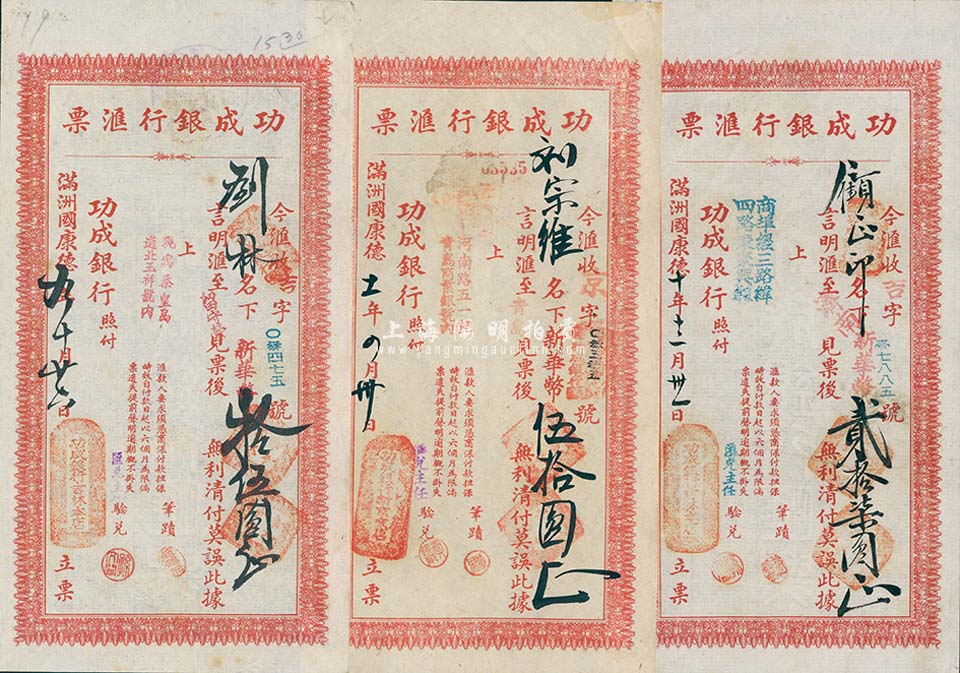 1530
票滙行銀成功
今滙收吉字
〇叁四七五
號
劉林
言明滙至
名下
新華幣
拾伍圓正
見票後
無利清付莫誤此據
上
道北玉祥號內
功成銀行照付
滙款人要求須憑商保付款担保
時效自付款日起以六個月為限倘
票遺失提前聲明逾期概不掛失
筆蹟
匯兌主任
驗兌
滿洲國康德九年十月廿六日
立票
票滙行銀成功
03535
今滙收京字
號
刘宗維
言明滙至青
名下新華幣
伍拾圓正
見票後
無利清付莫誤此據
上
河南路五
功成銀行照付
滙款人要求須憑商保付款担保
時效自付款日起以六個月為限倘
票遺失提前聲明逾期概不掛失
筆蹟
匯兌主任
驗兌
滿洲國康德十一年四月卅日
立票
票滙行銀成功
今滙收吉字
七八八五
號
顧正卯
言明滙至
名下
新華幣
貳拾柒圓正
見票後
無利清付莫誤此據
上
商埠經三路緯
四路
功成銀行照付
滙款人要求須憑商保付款担保
時效自付款日起以六個月為限倘
票遺失提前聲明逾期概不掛失
筆蹟
匯兌主任
驗兌
滿洲國康德十年十二月卅一日
立票
上海陽明拍賣
www.yangmingauction.com